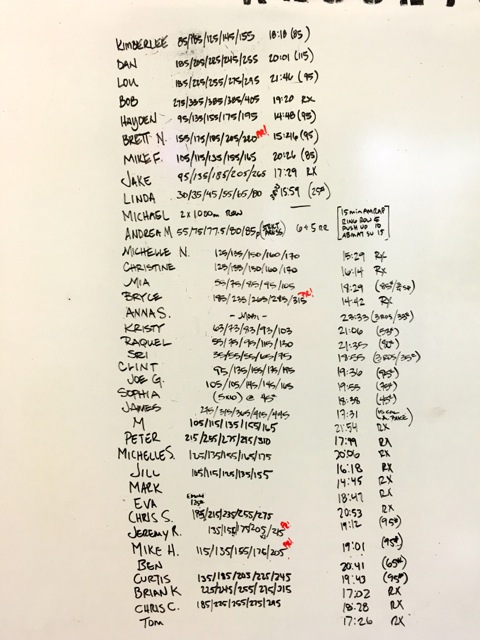 KIMBERLEE 85/105/125/145/155 18:18 (85)
DAN 185/205/225/245/255 20:01 (115)
LOU 185/225/255/275/295 21:46 (95)
BOB 275/335/365/385/405 19:20 RX
HAYDEN 95/135/155/175/195 14:48 (95)
BRETT N. 155/175/185/205/220 PR! 15:46 (95)
MIKE F. 105/115/135/155/165 20:26 (85)
JAKE 95/135/185/205/265 17:29 RX
LINDA 30/35/45/55/65/80 15:59 (25#)
MICHAEL 2 x 1000m ROW
ANDREA M 55/75/77.5/80/85 6 + 5 RR
15 min AMRAP
RING ROW 5
PUSH UP 10
ABMAT SU 15
MICHELLE N. 125/135/150/160/170 15:29 RX
CHRISTINE 125/135/150/160/170 16:14 RX
MIA 55/75/85/95/105 18:29
BRYCE 185/235/265/285/315 PR! 14:42 RX
ANNA S. 23:33 (3RDS/35#)
KRISTY 63/73/83/93/103 21:06 (53#)
RAQUEL 55/75/95/115/130 21:35
SRI 35/55/55/65/75 18:55 (3RDS/35#)
CLINT 95/135/155/175/195 19:36
JOE G. 105/105/145/145/165 19:55 (75#)
SOPHIA (5x10) @ 45# 18:38 (45#)
JAMES 275/315/365/415/445 17:31
M 105/115/135/155/165 21:54 RX
PETER 215/255/275/295/310 17:49 RX
MICHELLE S. 125/135/155/165/175 20:06 RX
JILL 105/115/125/135/155 16:18 RX
MARK 14:45 RX
EVA 18:47 RX
CHRIS S. 185/215/235/255/275 20:53 RX
JEREMY R. 135/155/175/205/215 PR! 19:12 (95#)
MIKE H. 115/135/155/175/205 PR! 19:01 (95#)
BEN 20:41 (65#)
CURTIS 135/185/205/225/245 19:43 (95#)
BRIAN K 225/245/255/275/315 17:02 RX
CHRIS C. 185/225/255/275/295 18:28 RX
TOM 17:26 RX